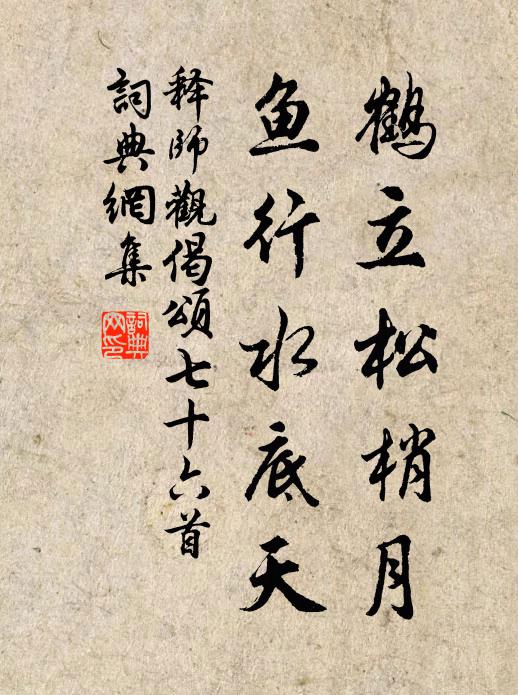 鹤立松梢月
鱼行水底天
释师觀偈頌七十六首
詞典網集
詞典
网印